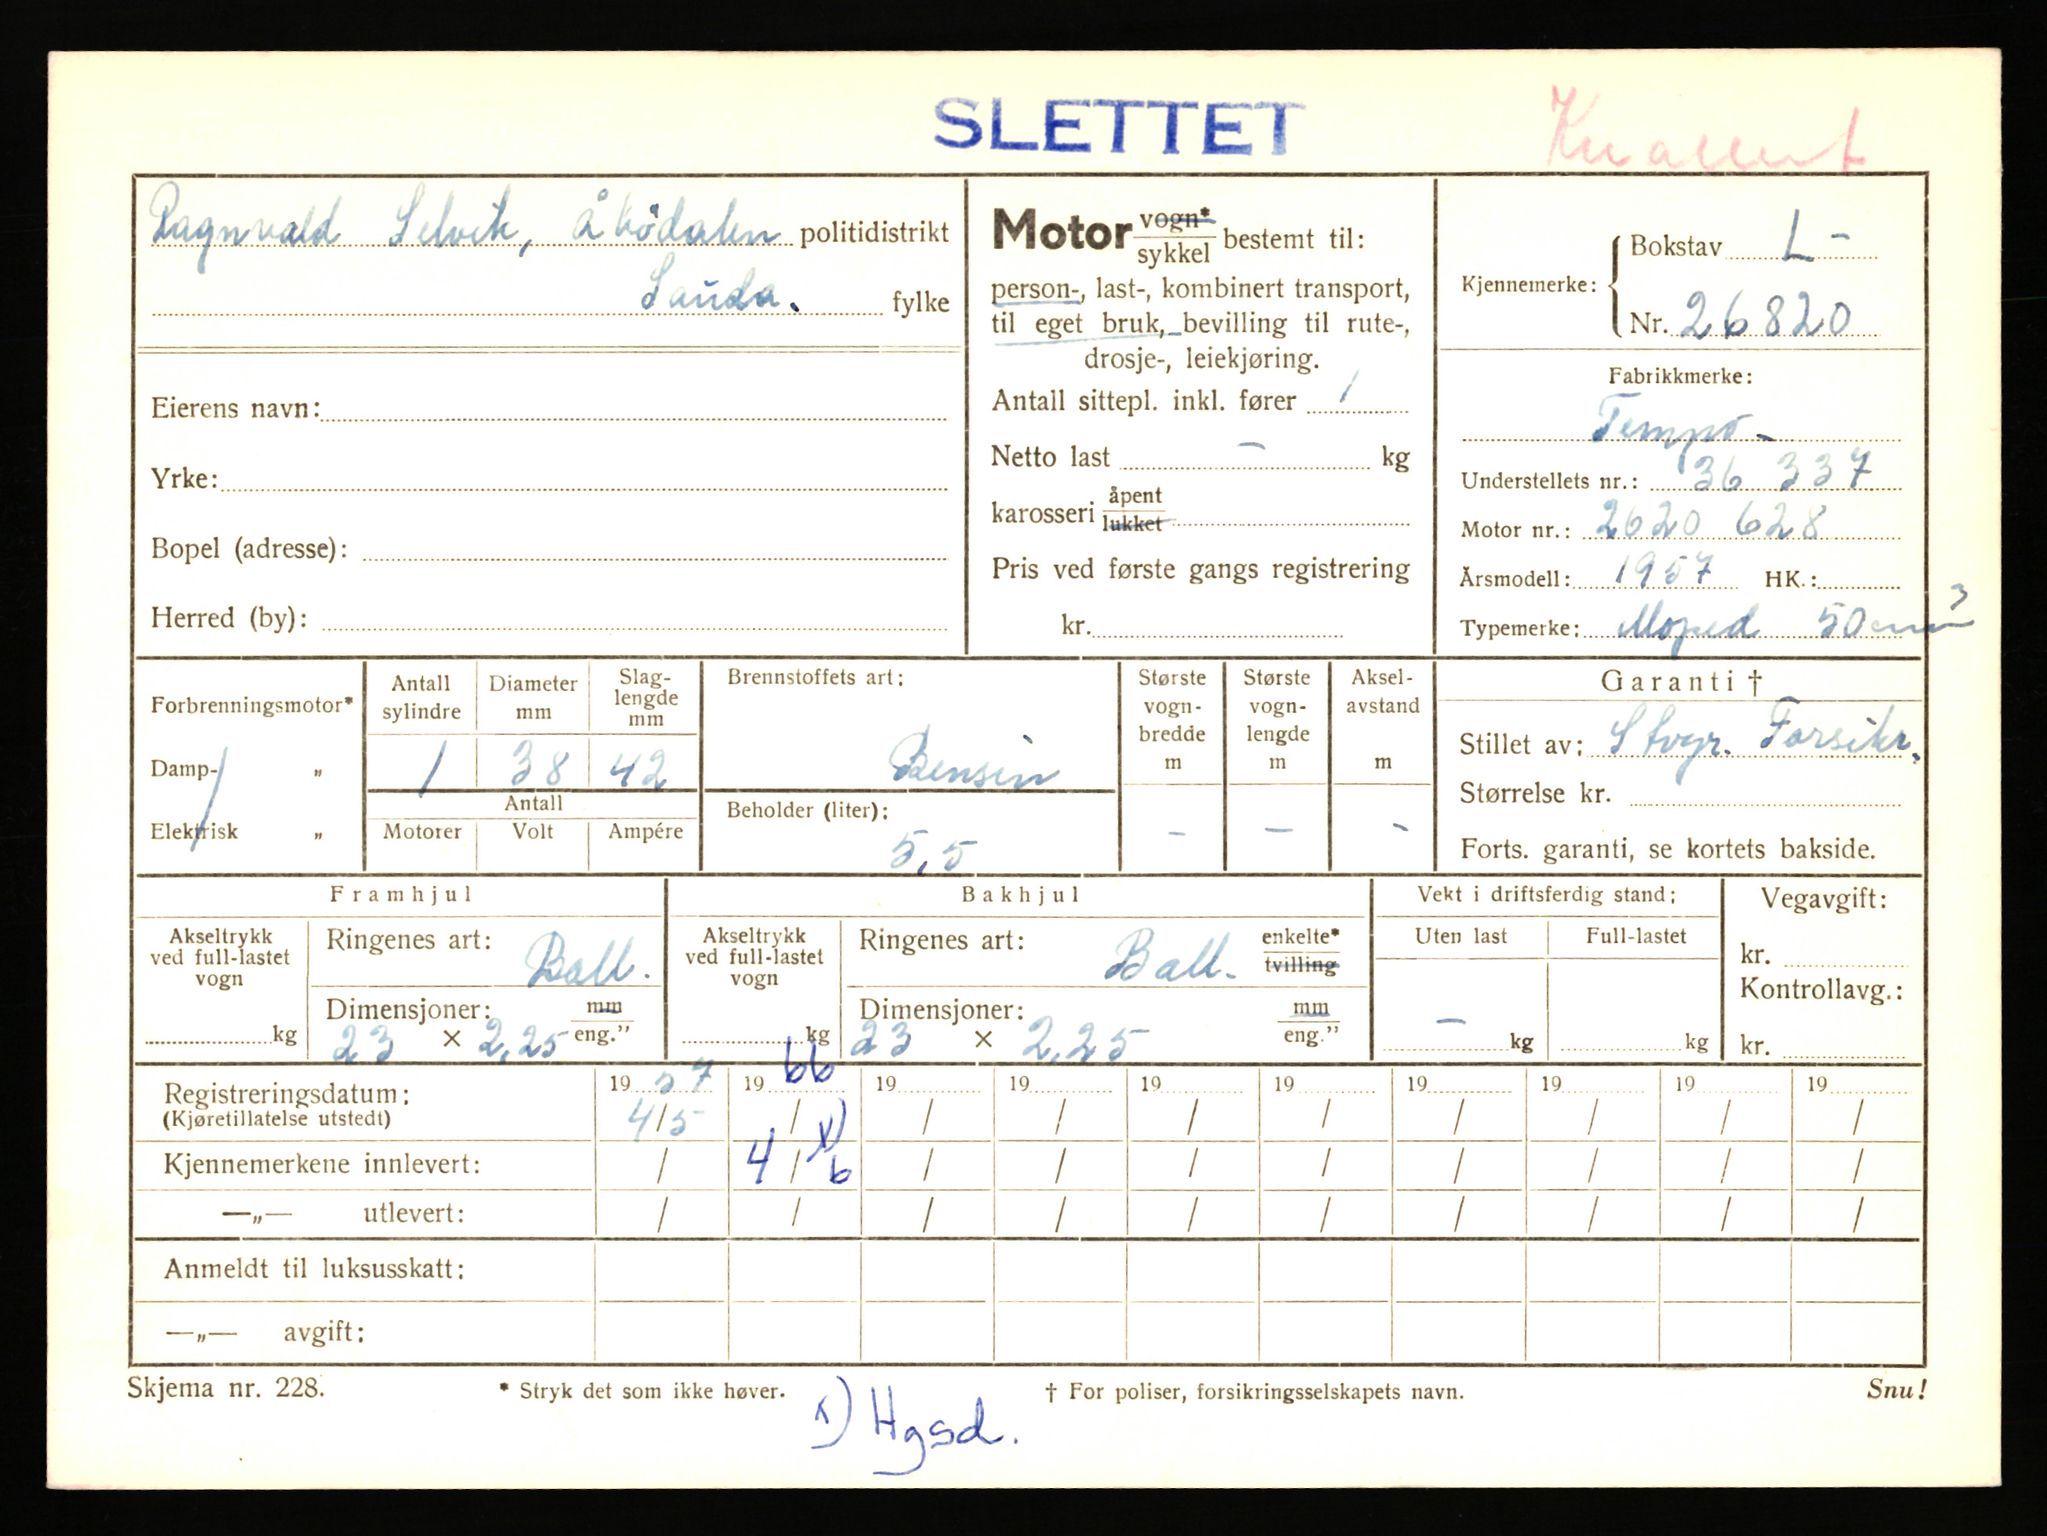 SLETTET
Knallert
Ragnvald Selvik, Åbödalen politidistrikt
Sauda. fylke
Eierens navn:
Yrke:
Bopel (adresse):
Herred (by):
Motor vogn* / sykkel bestemt til:
person-, last-, kombinert transport,
til eget bruk, bevilling til rute-,
drosje-, leiekjøring.
Antall sittepl. inkl. fører 1
Netto last - kg
karosseri åpent / lukket
Pris ved første gangs registrering
kr.
Kjennemerke: Bokstav L-
Nr. 26820
Fabrikkmerke:
Tempo-
Understellets nr.: 36 337
Motor nr.: 2620 628
Årsmodell: 1957 HK.:
Typemerke: Moped 50 cm³
Forbrenningsmotor*
Damp- „
Elektrisk „
Antall sylindre
Diameter mm
Slag-lengde mm
1 38 42
Antall
Motorer Volt Ampére
Brennstoffets art:
Bensin
Beholder (liter):
5,5
Største vogn-bredde m
-
Største vogn-lengde m
-
Aksel-avstand m
-
Garanti †
Stillet av: Stvgr. Forsikr.
Størrelse kr.
Forts. garanti, se kortets bakside.
Framhjul
Akseltrykk ved full-lastet vogn
kg
Ringenes art: Ball.
Dimensjoner: mm / eng."
23 × 2,25
Bakhjul
Akseltrykk ved full-lastet vogn
kg
Ringenes art: Ball. enkelte* / tvilling
Dimensjoner: mm / eng."
23 × 2,25
Vekt i driftsferdig stand:
Uten last Full-lastet
- kg kg
Vegavgift:
kr.
Kontrollavg.:
kr.
Registreringsdatum: 19 57 19 66 19 19 19 19 19 19 19 19
(Kjøretillatelse utstedt) 4/5 / / / / / / / / /
Kjennemerkene innlevert: / 4/6 x) / / / / / / / /
—„— utlevert: / / / / / / / / / /
Anmeldt til luksusskatt:
—„— avgift:
Skjema nr. 228. * Stryk det som ikke høver. † For poliser, forsikringsselskapets navn. Snu!
x) Hgsd.